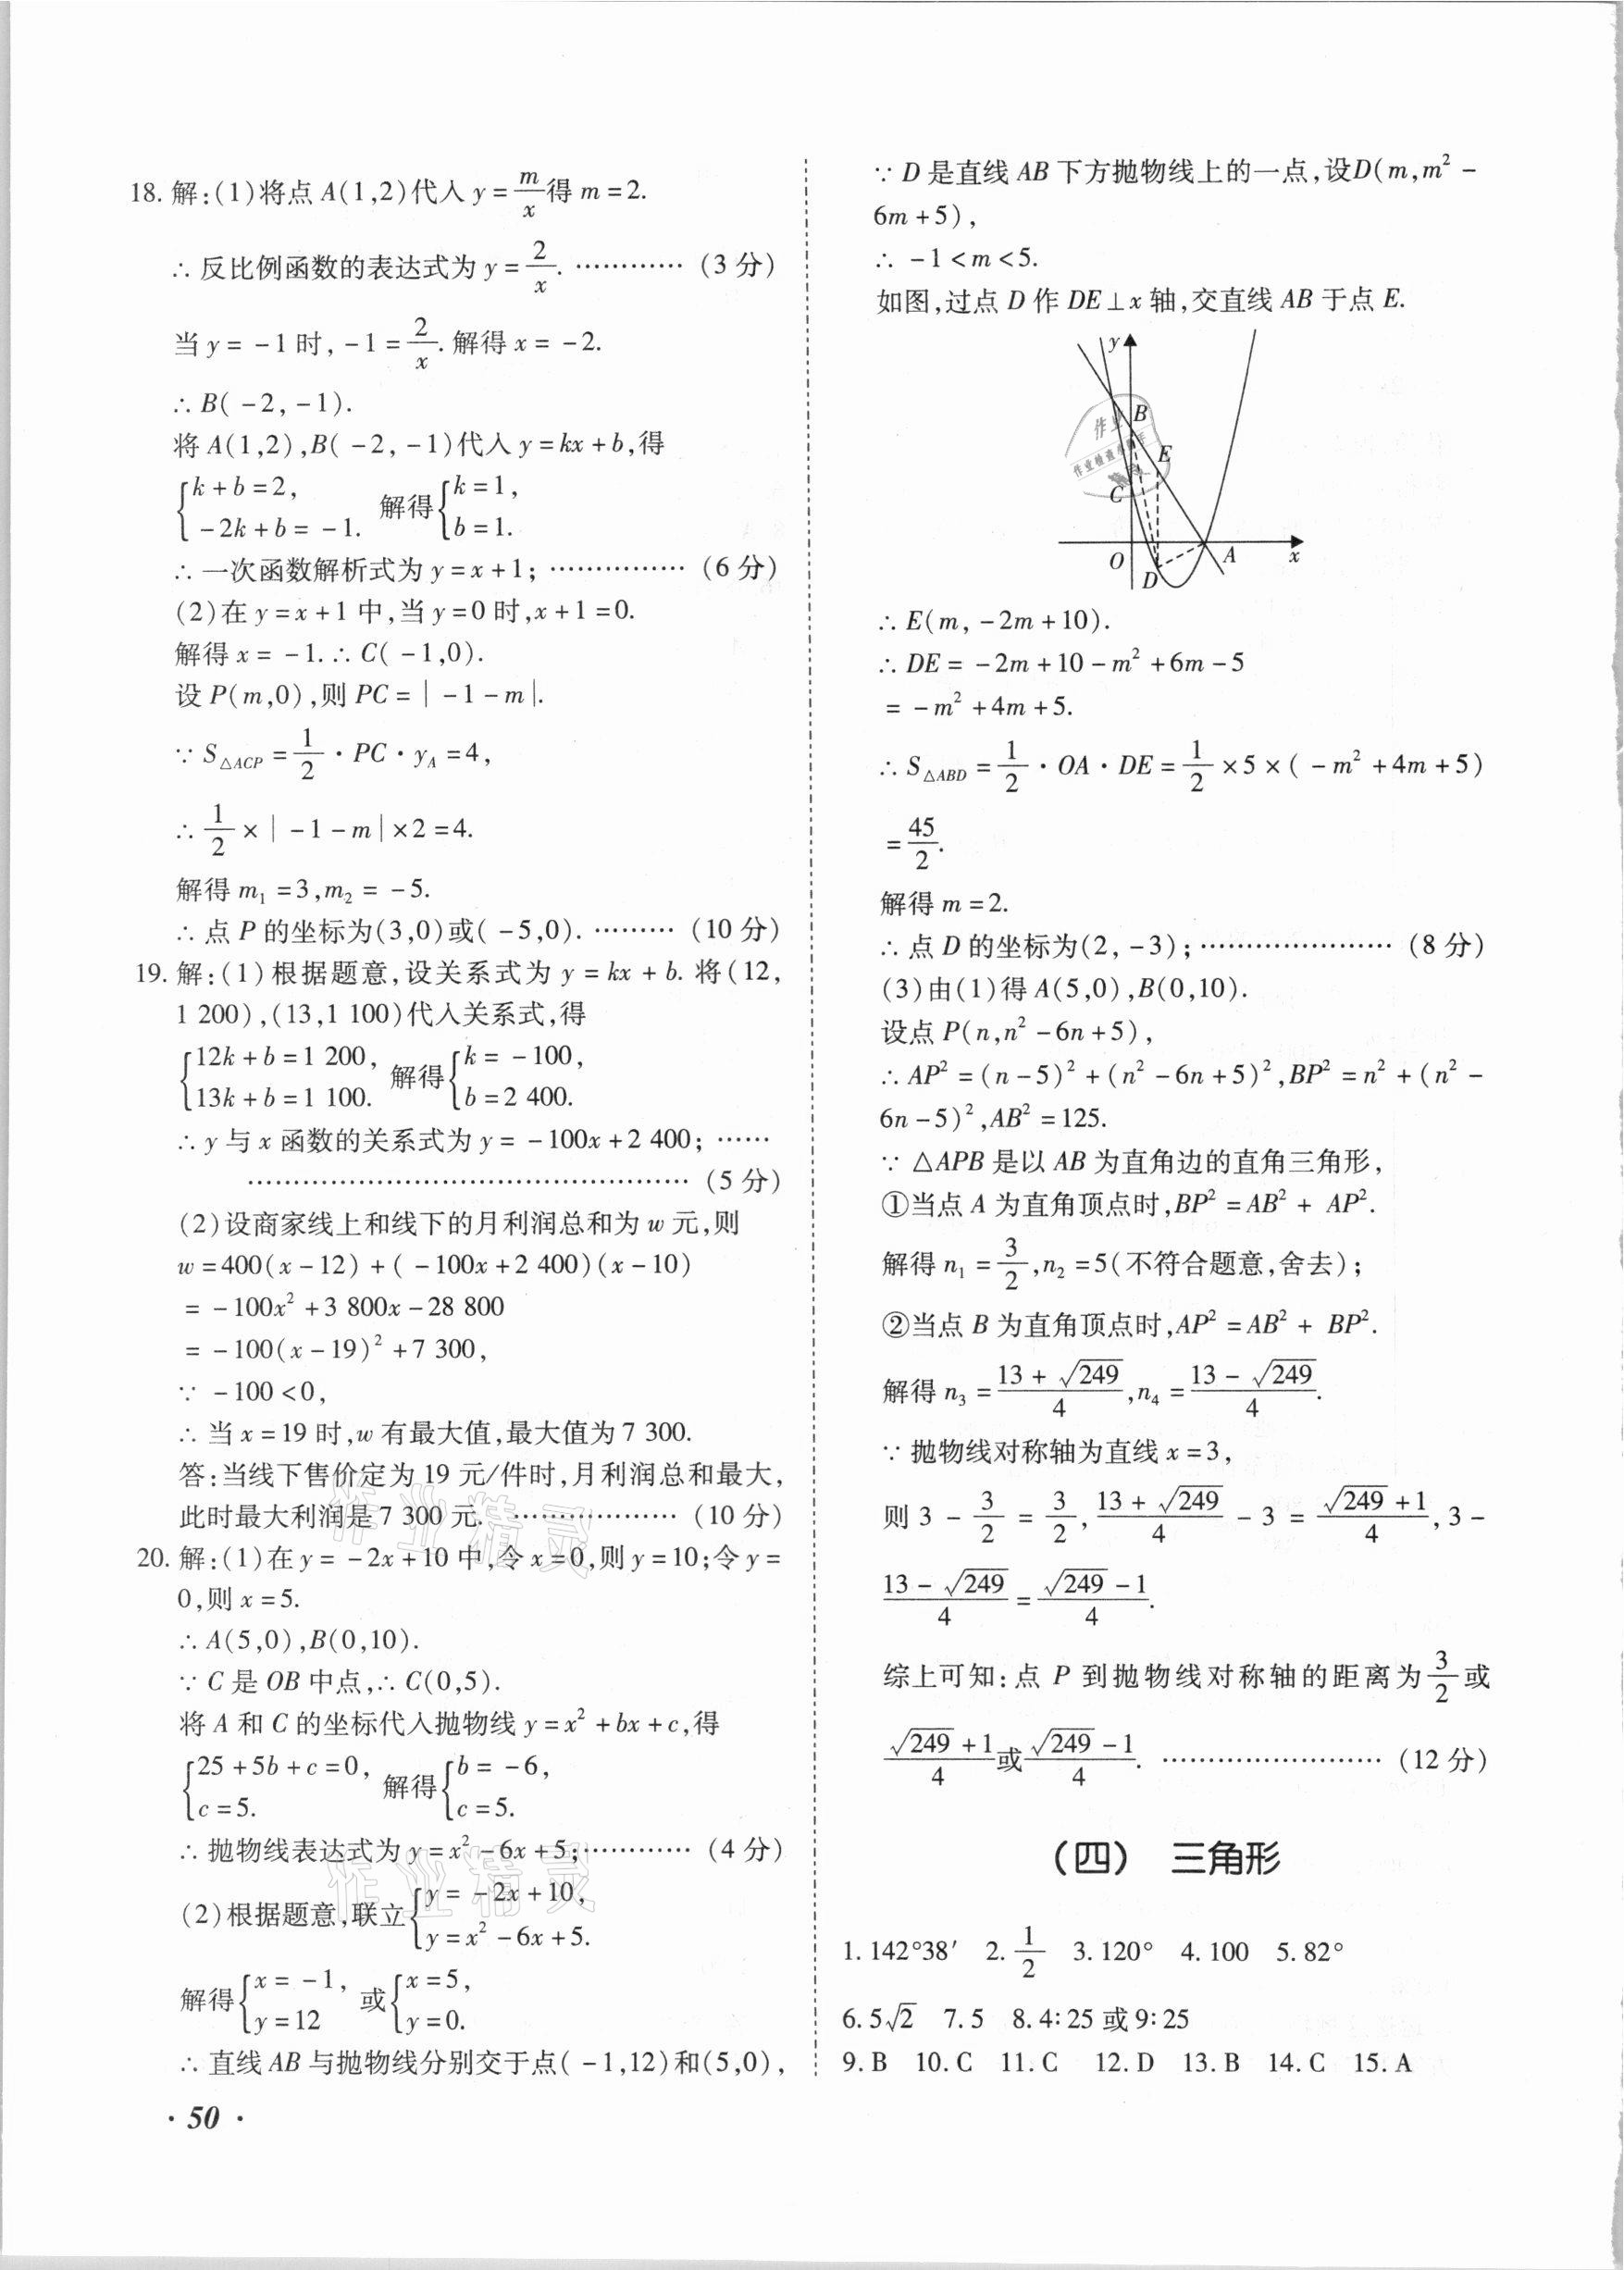 18. 解:(1)将点 A(1,2)代入 y=m/x得 m=2.
∴ 反比例函数的表达式为 y=2/x. ………… (3 分)
当 y=-1 时, -1=2/x. 解得 x=-2.
∴ B(-2,-1).
将 A(1,2),B(-2,-1)代入 y=kx+b,得
{k+b=2, -2k+b=-1. 解得{k=1, b=1.
∴ 一次函数解析式为 y=x+1; …………… (6 分)
(2)在 y=x+1 中,当 y=0 时,x+1=0.
解得 x=-1. ∴ C(-1,0).
设 P(m,0),则 PC=|-1-m|.
∵ S△ACP=1/2·PC·yA=4,
∴ 1/2×|-1-m|×2=4.
解得 m₁=3,m₂=-5.
∴ 点 P 的坐标为(3,0)或(-5,0). ……… (10 分)
19. 解:(1)根据题意,设关系式为 y=kx+b. 将(12,
1 200),(13,1 100)代入关系式,得
{12k+b=1 200, 13k+b=1 100. 解得{k=-100, b=2 400.
∴ y 与 x 函数的关系式为 y=-100x+2 400; ……
………………………………………… (5 分)
(2)设商家线上和线下的月利润总和为 w 元,则
w=400(x-12)+(-100x+2 400)(x-10)
=-100x²+3 800x-28 800
=-100(x-19)²+7 300,
∵ -100<0,
∴ 当 x=19 时,w 有最大值,最大值为 7 300.
答:当线下售价定为 19 元/件时,月利润总和最大,
此时最大利润是 7 300 元. ……………… (10 分)
20. 解:(1)在 y=-2x+10 中,令 x=0,则 y=10;令 y=
0,则 x=5.
∴ A(5,0),B(0,10).
∵ C 是 OB 中点,∴ C(0,5).
将 A 和 C 的坐标代入抛物线 y=x²+bx+c,得
{25+5b+c=0, c=5. 解得{b=-6, c=5.
∴ 抛物线表达式为 y=x²-6x+5; ………… (4 分)
(2)根据题意,联立{y=-2x+10, y=x²-6x+5.
解得{x=-1, y=12 或{x=5, y=0.
∴ 直线 AB 与抛物线分别交于点(-1,12)和(5,0),
· 50 ·
∵ D 是直线 AB 下方抛物线上的一点,设D(m,m²-
6m+5),
∴ -1<m<5.
如图,过点 D 作 DE⊥x 轴,交直线 AB 于点 E.
y
B
E
C
O
D
A
x
作业
作业检查小助手
精灵
∴ E(m,-2m+10).
∴ DE=-2m+10-m²+6m-5
=-m²+4m+5.
∴ S△ABD=1/2·OA·DE=1/2×5×(-m²+4m+5)
=45/2.
解得 m=2.
∴ 点 D 的坐标为(2,-3); ………………… (8 分)
(3)由(1)得 A(5,0),B(0,10).
设点 P(n,n²-6n+5),
∴ AP²=(n-5)²+(n²-6n+5)²,BP²=n²+(n²-
6n-5)²,AB²=125.
∵ △APB 是以 AB 为直角边的直角三角形,
①当点 A 为直角顶点时,BP²=AB²+ AP².
解得 n₁=3/2,n₂=5(不符合题意,舍去);
②当点 B 为直角顶点时,AP²=AB²+ BP².
解得 n₃=(13+√249)/4,n₄=(13-√249)/4.
∵ 抛物线对称轴为直线 x=3,
则 3-3/2=3/2,(13+√249)/4-3=(√249+1)/4,3-
(13-√249)/4=(√249-1)/4.
综上可知:点 P 到抛物线对称轴的距离为3/2或
(√249+1)/4或(√249-1)/4. …………………… (12 分)
(四) 三角形
1. 142°38′ 2. 1/2 3. 120° 4. 100 5. 82°
6. 5√2 7. 5 8. 4∶25 或 9∶25
9. B 10. C 11. C 12. D 13. B 14. C 15. A
作业精灵
作业精灵